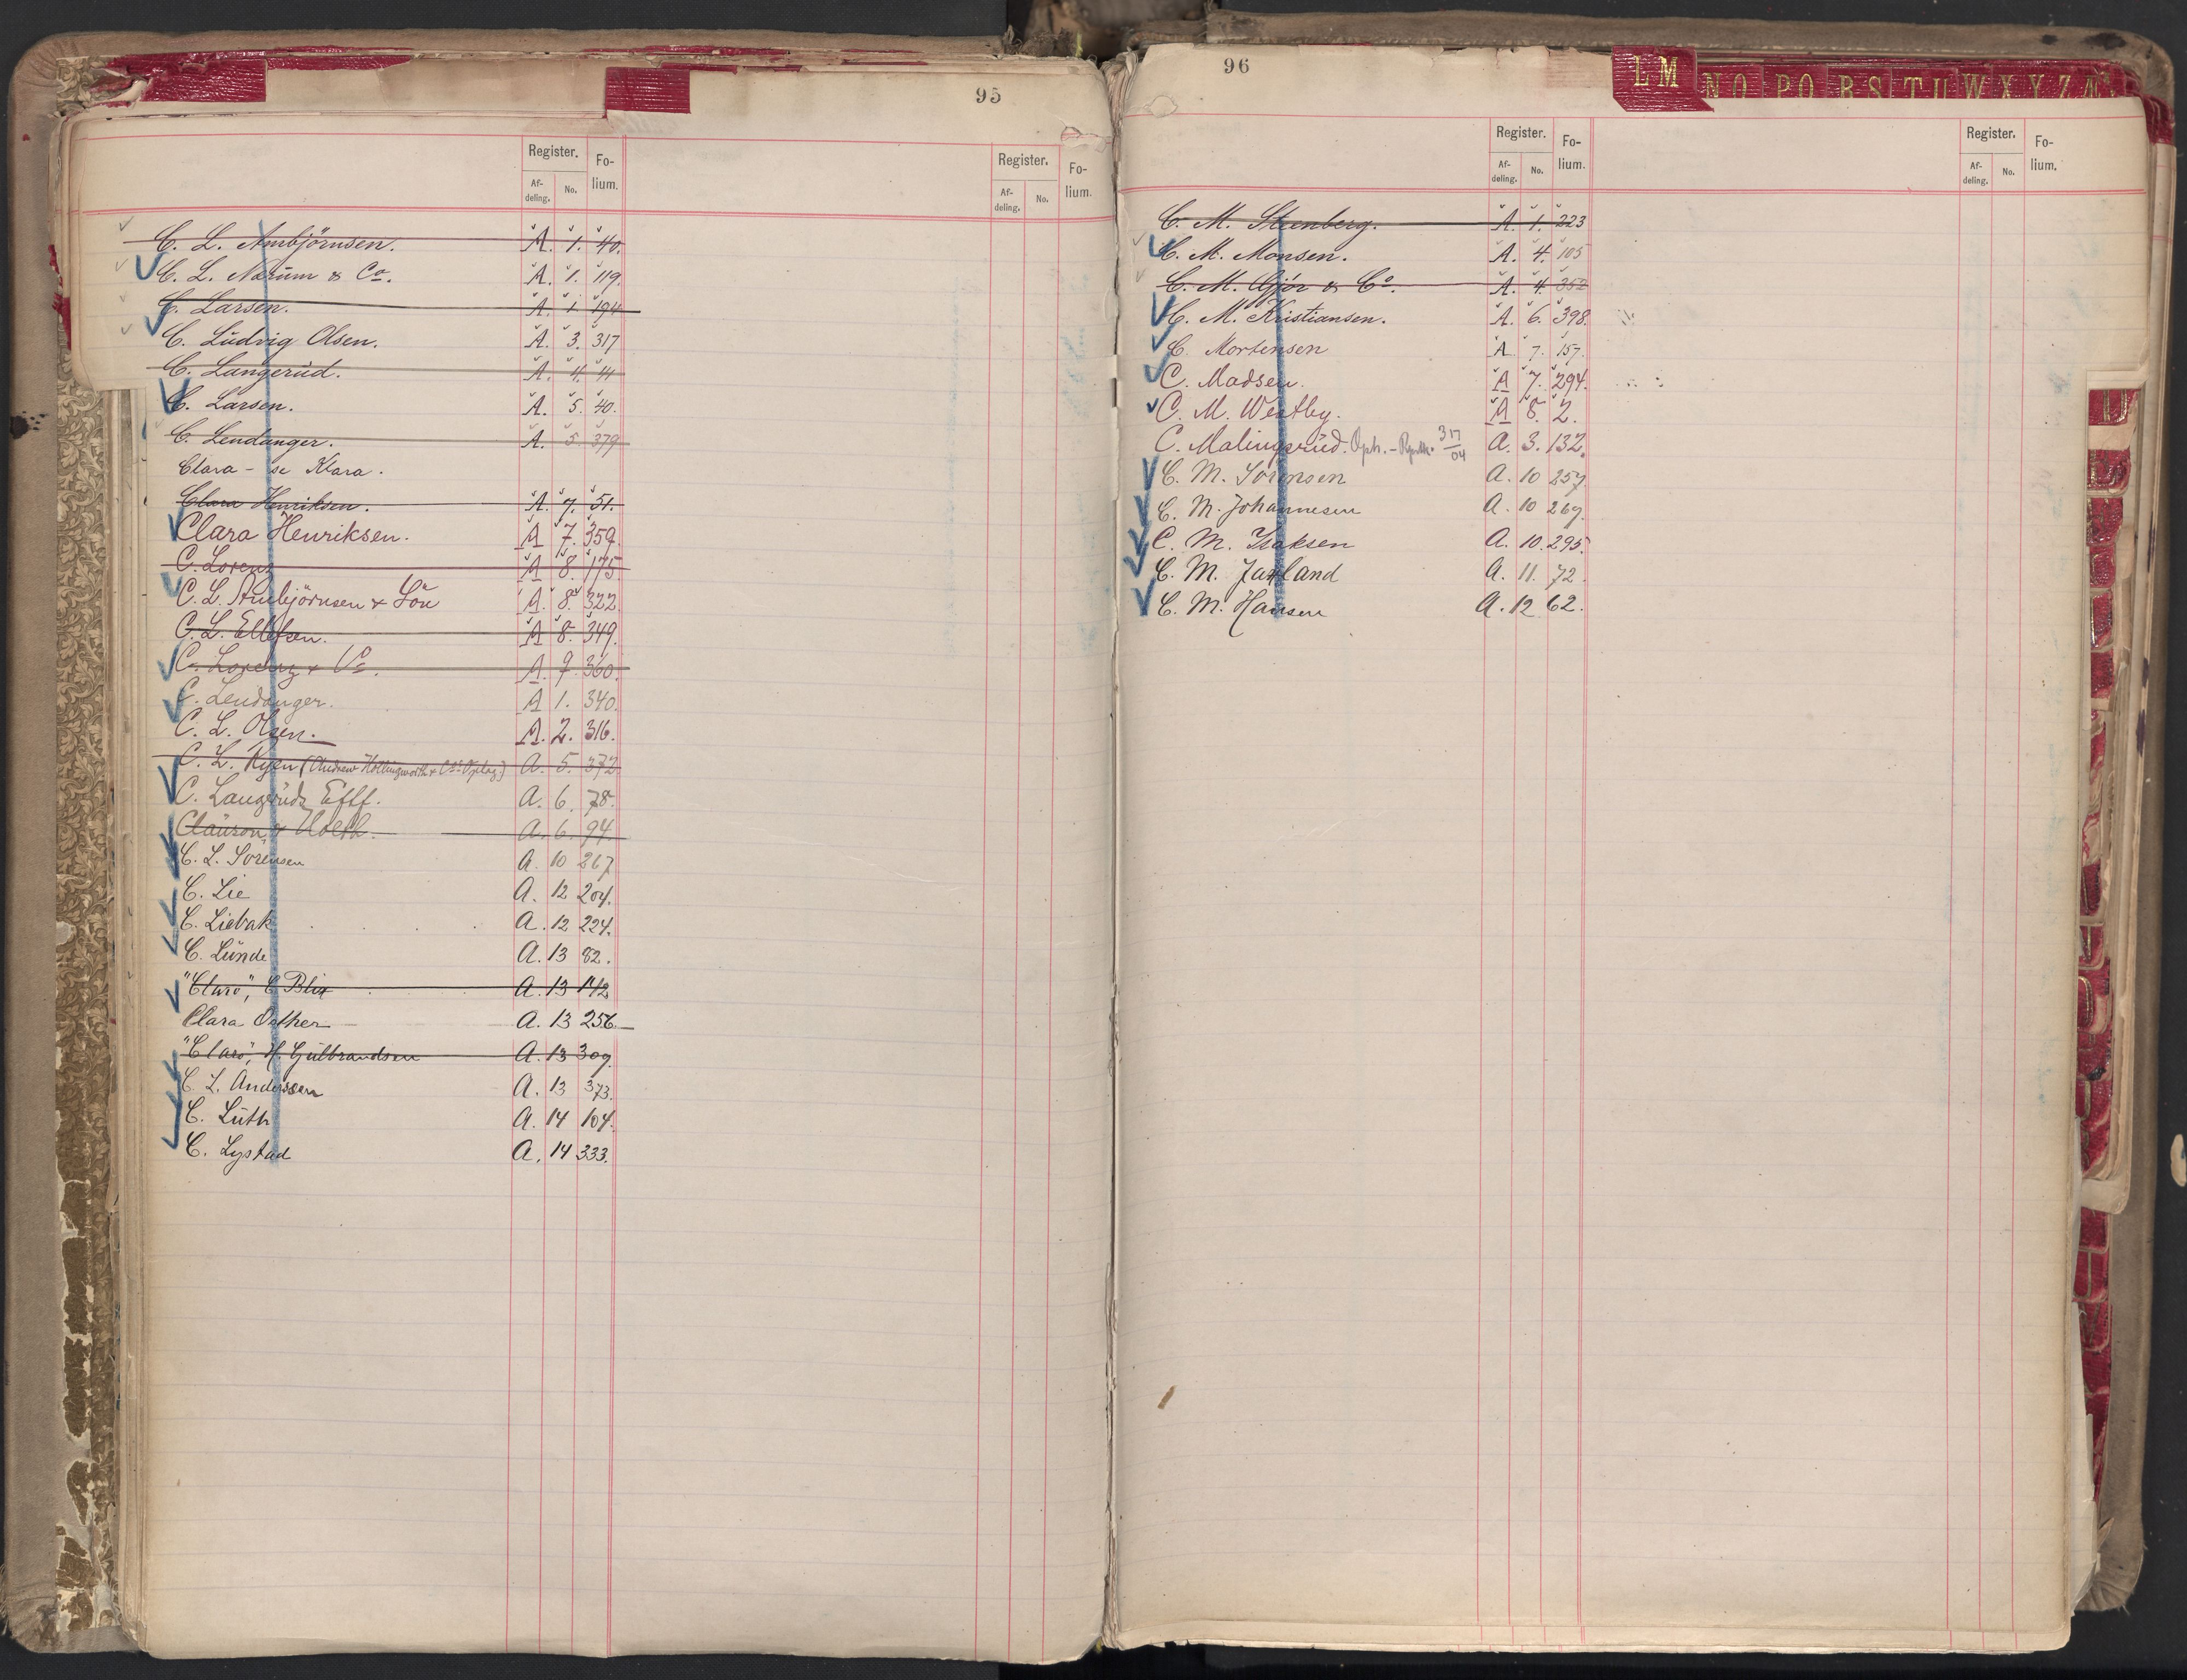 95
Register. Fo-
lium.
Af-
deling. No.
Register. Fo-
lium.
Af-
deling. No.
C. L. Ambjörnsen. A. 1. 40.
C. L. Narum & Co. A. 1. 119.
C. Larsen. A. 1. 194
C. Ludvig Olsen. A. 3. 317
C. Langerud. A. 4. 44
C. Larsen. A. 5. 40.
C. Lendanger. A. 5. 379
Clara – se Klara.
Clara Henriksen. A. 7. 51.
Clara Henriksen. A 7. 359.
C. Lorenz A 8. 175.
C. L. Ambjörnsen & Sön A. 8. 322.
C. L. Ellefsen. A 8. 349.
C. Lorenz & Co. A. 9. 360.
C. Lendanger. A 1. 340.
C. L. Olsen. A. 2. 316.
C. L. Ryen (Andrew Hollingworth & Co's Oplag.) A. 5. 372
C. Langeruds Eftf. A. 6. 78.
Clauson & Holth. A. 6. 94.
C. L. Sörensen A. 10 267
C. Lie A. 12 204.
C. Liebak A. 12 224.
C. Lunde A. 13 82.
"Claro", C Blix A. 13 142
Clara Osther A. 13 256
"Claro", H. Gulbrandsen A. 13 309.
C. L. Anderssen A. 13 373.
C. Luth A. 14 104.
C. Lystad A. 14 333.
96
L M N O P Q R S T U W X Y Z Æ
Register. Fo-
lium.
Af-
deling. No.
Register. Fo-
lium.
Af-
deling. No.
C. M. Steenberg. A. 1. 223
C. M. Monsen. A. 4. 105
C. M. Gjör & Co. A. 4. 352
C. M. Kristiansen. A. 6. 398.
C. Mortensen A 7. 157.
C. Madsen. A 7. 294.
C. M. Westby. A 8. 2.
C. Malingsrud. Oph. 3 17/04 A. 3. 132.
C. M. Sörensen A. 10 257
C. M. Johannesen A. 10 269.
C. M. Isaksen A. 10. 295.
C. M. Jarland A. 11. 72.
C. M. Hansen A. 12 62.